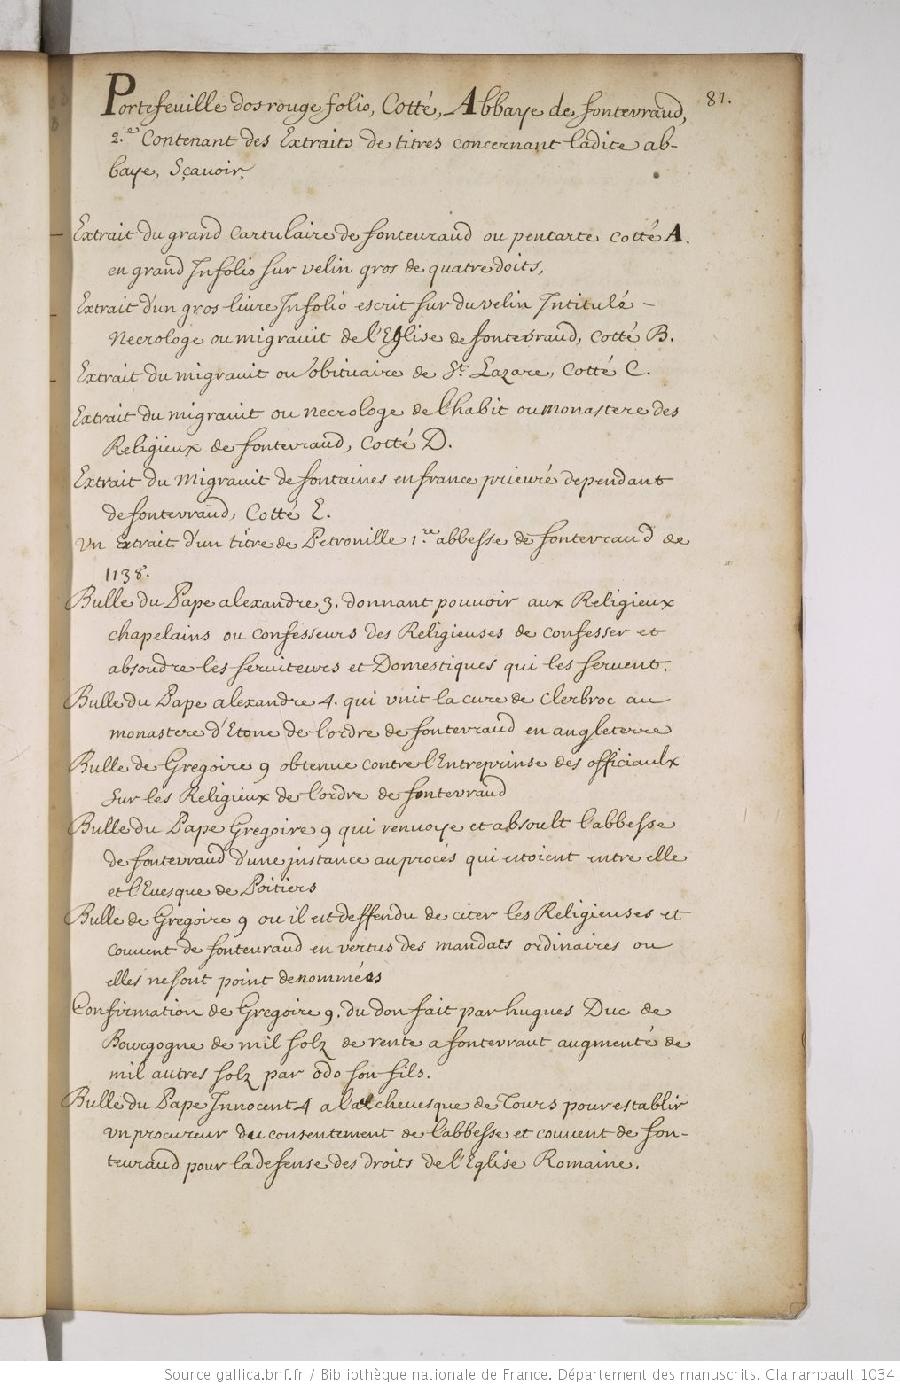 81.
Portefeuille dos rouge folio, Cotté, Abbaye de fontevraud,
2.es Contenant des Extraits de titres concernant ladite ab-
baye, Sçauoir,
Extrait du grand Cartulaire de fonteuraud ou pentarte cotté A.
en grand Infolio sur velin gros de quatre doits,
Extrait d'un gros liure Infolio escrit sur du velin Intitulé -
Necrologe ou migrauit de l'Eglise de fontevraud, cotté B.
Extrait du migrauit ou obituaire de St. Lazare, Cotté C.
Extrait du migrauit ou necrologe de l'habit ou monastere des
Religieux de fontevraud, Cotté D.
Extrait du Migrauit de fontaines en france prieuré dependant
de fontevraud, Cotté E.
Un Extrait d'un titre de Petronille 1.re abbesse de fontevraud de
1138.
Bulle du Pape alexandre 3. donnant pouuoir aux Religieux
chapelains ou confesseurs des Religieuses de confesser et
absoudre les seruiteurs et Domestiques qui les seruent.
Bulle du Pape alexandre 4. qui vnit la cure de Clerbroc au
monastere d'Etone de l'ordre de fontevraud en angleterre
Bulle de Gregoire 9 obtenue contre l'Entreprinse des officiaulx
sur les Religieux de l'ordre de fontevraud
Bulle du Pape Gregoire 9 qui renuoye et absoult l'abbesse
de fontevraud d'une instance au procés qui etoient entre elle
et l'Euesque de Poitiers
Bulle de Gregoire 9 ou il est deffendu de citer les Religieuses et
couuent de fonteuraud en vertus des mandats ordinaires ou
elles ne sont point denommées
Confirmation de Gregoire 9. du don fait par hugues Duc de
Bourgogne de mil solz de rente a fontevraut augmenté de
mil autres solz par odo son fils.
Bulle du Pape Innocent 4 a l'archeuesque de Tours pour establir
vn procureur du consentement de l'abbesse et couuent de fon-
teuraud pour la defense des droits de l'Eglise Romaine.
Source gallica.bnf.fr / Bibliothèque nationale de France. Département des manuscrits. Clairambault 1034